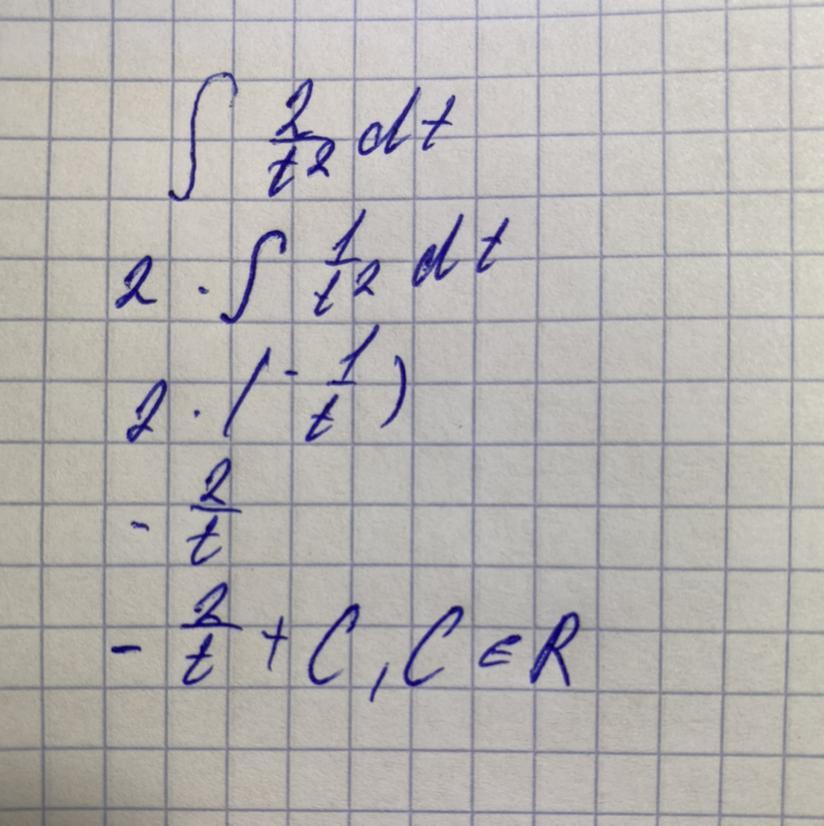 ∫ 2/t² dt
2 · ∫ 1/t² dt
2 · (- 1/t)
- 2/t
- 2/t + C, C ∈ R